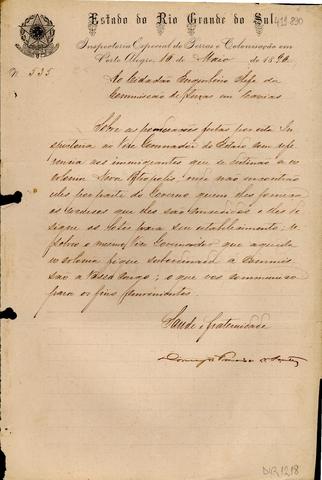 Estado do Rio Grande do Sul
Inspectoria Especial de Terras e Colonisação em
Porto Alegre, 10 de Maio de 1890
N. 335
Ao Cidadão Engenheiro Chefe da
Commissão de Terras em Caxias
Sobre as ponderações feitas por esta Ins
pectoria ao Vice Governador do Estado com refe
rencia aos immigrantes que se destinão a ex
colonia Nova Petropolis, onde não encontrão
eles por parte do Governo quem lhes forneça
os lotes para seu estabelecimento,
o mesmo Vice Governador que aquella
ex colonia fique subordinada a Commis
são a Vosso cargo; o que vos communico
para os fins convenientes.
Saude e fraternidade
D42,1218